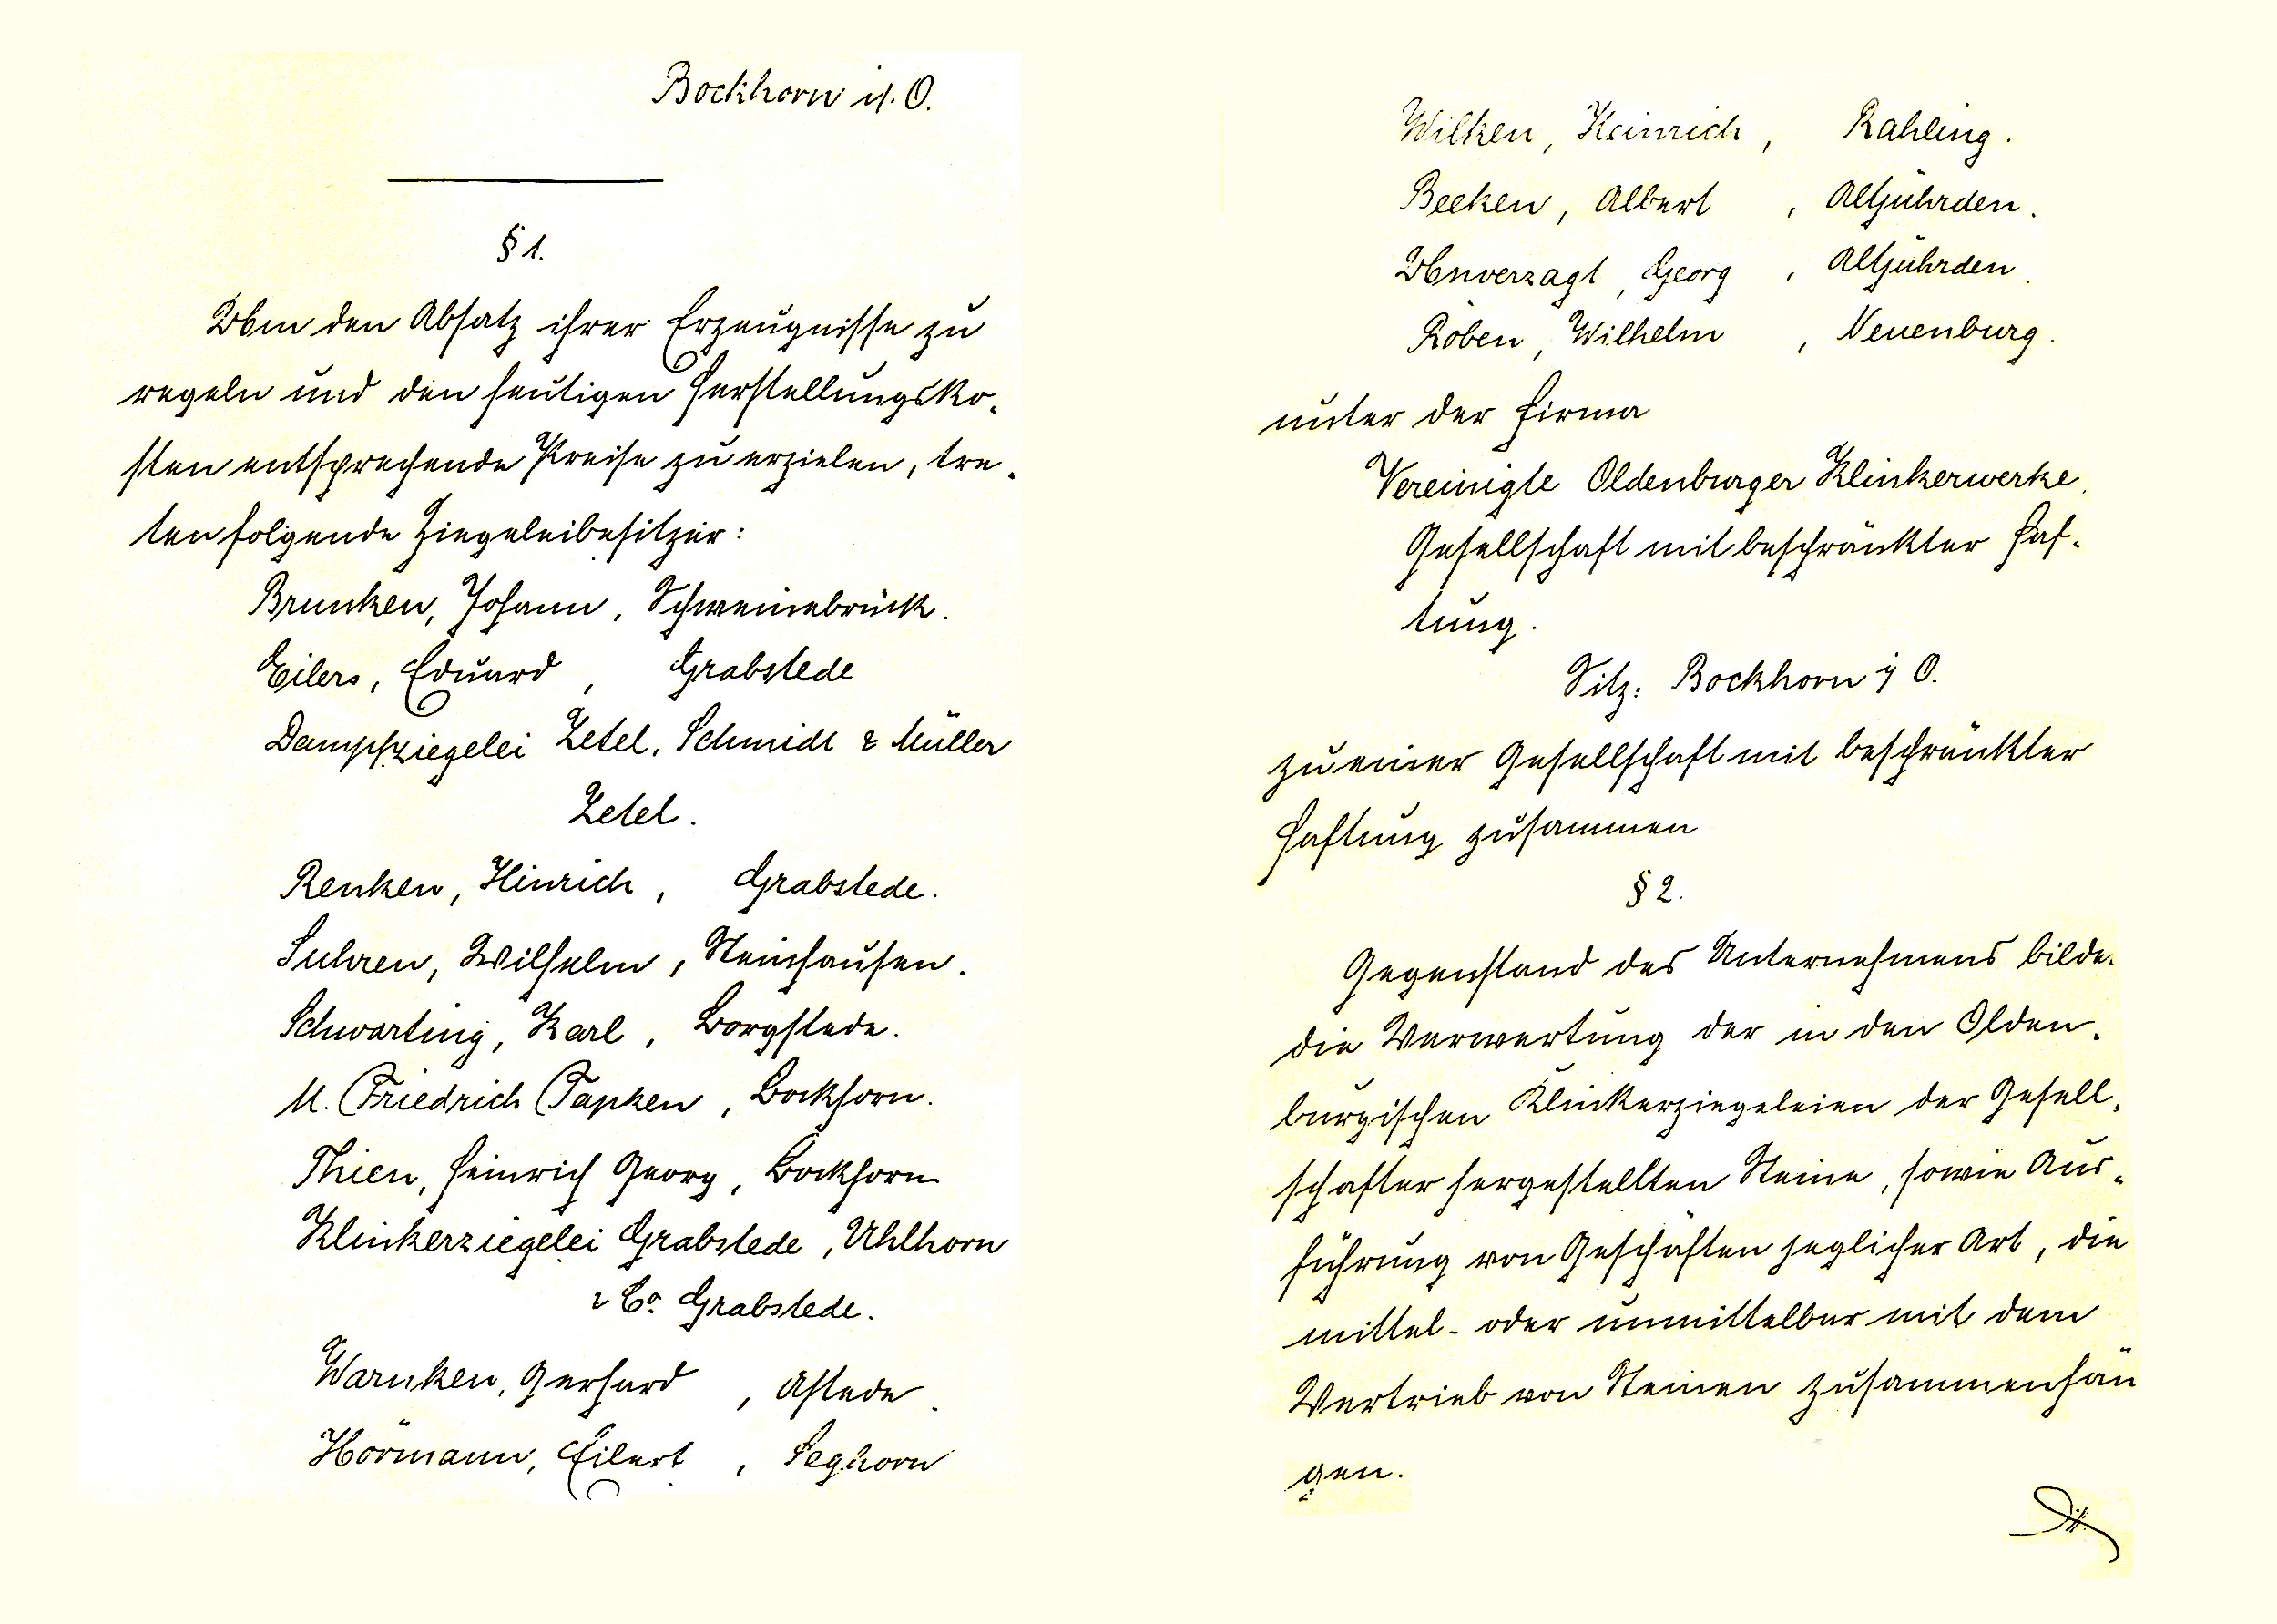 Bockhorn i/. O.
§ 1.
Um den Absatz ihrer Erzeugnisse zu
regeln und den heutigen Herstellungsko-
sten entsprechende Preise zu erzielen, tre-
ten folgende Ziegeleibesitzer:
Brunken, Johann, Schweinebrück.
Eilers, Eduard, Grabstede
Dampfziegelei Zetel, Schmidt & Müller
Zetel.
Renken, Hinrich, Grabstede.
Suhren, Wilhelm, Steinhausen.
Schwarting, Karl, Borgstede.
M. Friedrich Tapken, Bockhorn.
Thien, Heinrich Georg, Bockhorn
Klinkerziegelei Grabstede, Uhlhorn
& Co. Grabstede.
Warnken, Gerhard, Astede.
Hörmann, Eilert, Seghorn
Wilken, Heinrich, Rahling.
Beeken, Albert, Altjührden.
Unverzagt, Georg, Altjührden.
Röben, Wilhelm, Neuenburg.
unter der Firma
Vereinigte Oldenburger Klinkerwerke.
Gesellschaft mit beschränkter Haf-
tung.
Sitz: Bockhorn i/ O.
zu einer Gesellschaft mit beschränkter
Haftung zusammen
§ 2.
Gegenstand des Unternehmens bilde.
die Verwertung der in den Olden-
burgischen Klinkerziegeleien der Gesell-
schafter hergestellten Steine, sowie Aus-
führung von Geschäften jeglicher Art, die
mittel- oder unmittelbar mit dem
Vertrieb von Steinen zusammenhän
gen.